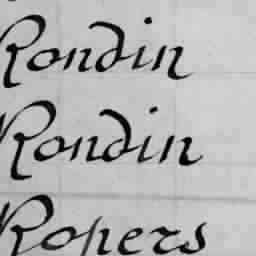 Rondin
Rondin
Ropers